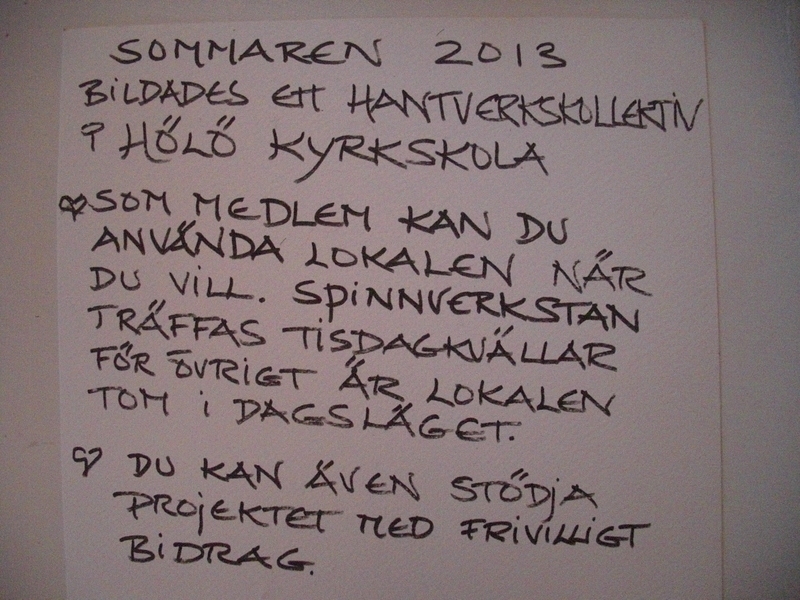 SOMMAREN 2013
BILDADES ETT HANTVERKSKOLLEKTIV
I HÖLÖ KYRKSKOLA
SOM MEDLEM KAN DU
ANVÄNDA LOKALEN NÄR
DU VILL. SPINNVERKSTAN
TRÄFFAS TISDAGKVÄLLAR
FÖR ÖVRIGT ÄR LOKALEN
TOM I DAGSLÄGET.
DU KAN ÄVEN STÖDJA
PROJEKTET MED FRIVILLIGT
BIDRAG.